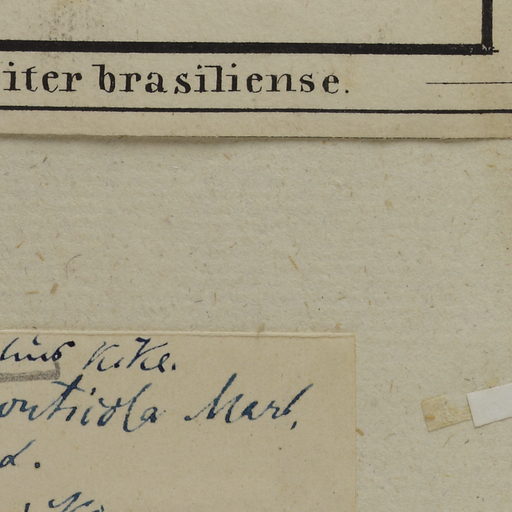 iter brasiliense.
K.Ke.
onticola Mart.
d.